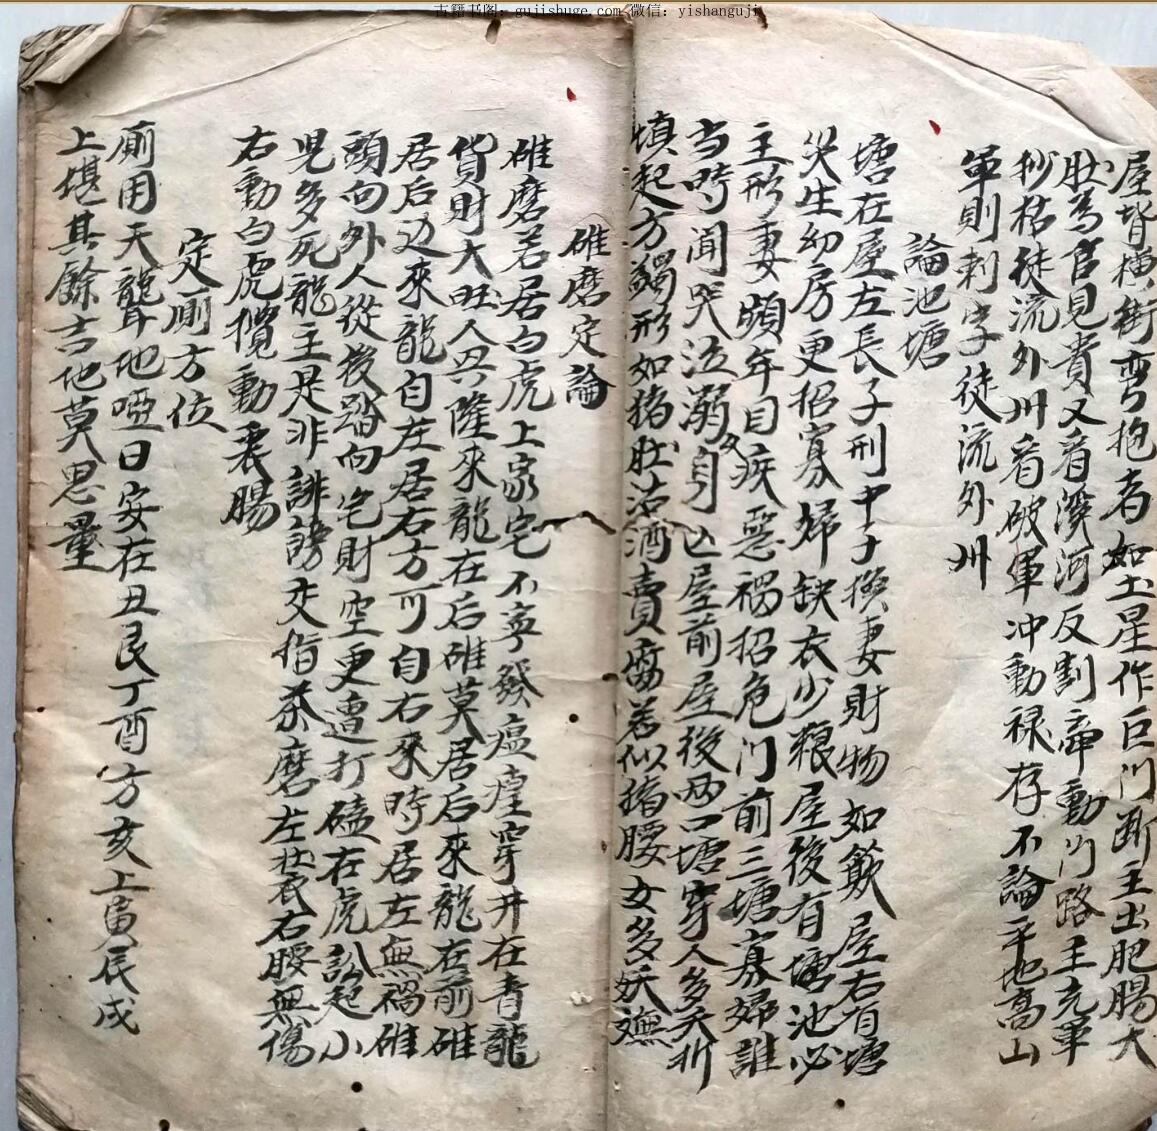 古籍书阁: gujishuge.com 微信: yishanguji
屋皆横街弯抱者如土星作巨门断主出肥腸大
肚為官見貴又看溪河反割帝動门路主充軍
抄枯徒流外州看破軍冲動禄存不論平地高山
軍則刺字徒流外州
論池塘
塘在屋左長子刑中子換妻財物如歎屋右有塘
災生幼房更招寡婦缺衣少粮屋後有塘池必
主形妻頗年目疾惡禍招危门前三塘寡婦誰
当時闻哭泣溺身亡屋前屋後两口塘穿人多夭折
填起方蠲形如猪肚沽酒賣 若似猪腰女多妖
碓磨定論
碓磨若居白虎上家宅不寧發瘟瘽穿井在青龍
貨財大旺人兴隆來龍在后碓莫居后來龍在前碓
居后边來龍自左居右方可自右來時居左無禍碓
頭向外人從後踏向宅財空更遭打磕在虎訟起小
児多死龍主是非誹謗交指茶磨左装右腰無傷
右動白虎攬動裏腸
定厠方位
廁用天聾地啞日安在丑艮丁酉方亥上寅辰戌
上堪其餘吉他莫思量